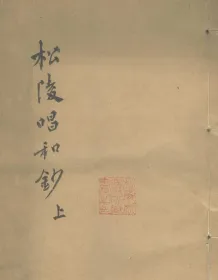 松陵唱和鈔 上